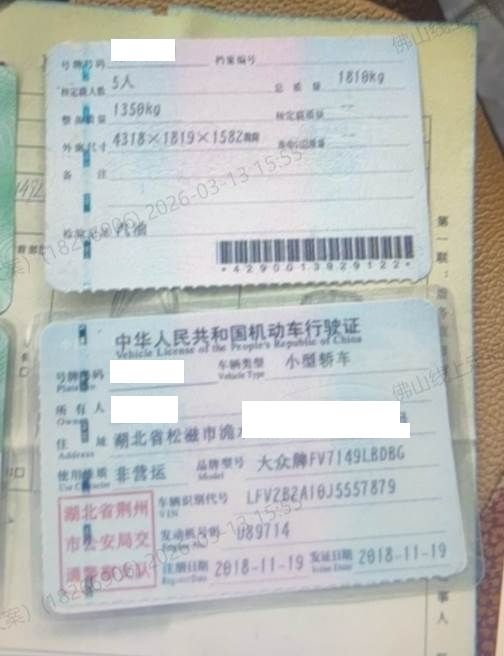 号牌号码 档案编号
核定载人数 5人 总质量 1810kg
整备质量 1350kg 核定载质量 --
外廓尺寸 4318×1819×1582mm --
备注
检验记录 汽油
*4290013929122*
中华人民共和国机动车行驶证
Vehicle License of the People's Republic of China
号牌号码 车辆类型 小型轿车
Plate No. Vehicle Type
所有人
住址 湖北省松滋市
Address
使用性质 非营运 品牌型号 大众牌FV7149LBDBG
Use Character Model
车辆识别代号 LFV2B2A10J5557879
VIN
发动机号码 U89714
注册日期 2018-11-19 发证日期 2018-11-19
Register Date Issue Date
湖北省荆州
市公安局交
通警察支队
第一联：
2026-03-13 15:55
佛山线上